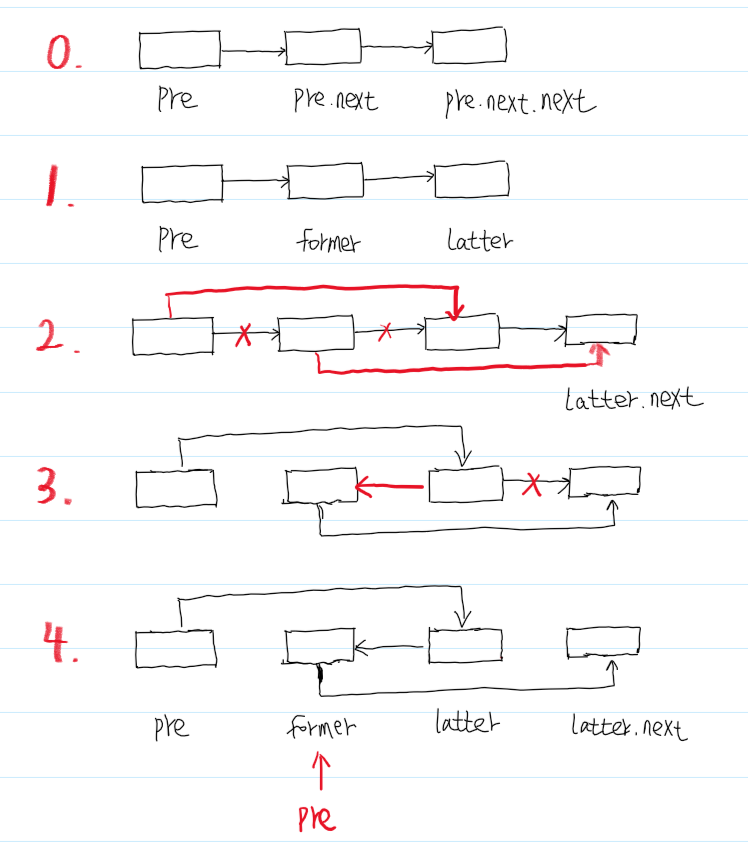 0.
Pre Pre.next Pre.next.next
1.
Pre former latter
2.
latter.next
3.
4.
pre former latter latter.next
pre